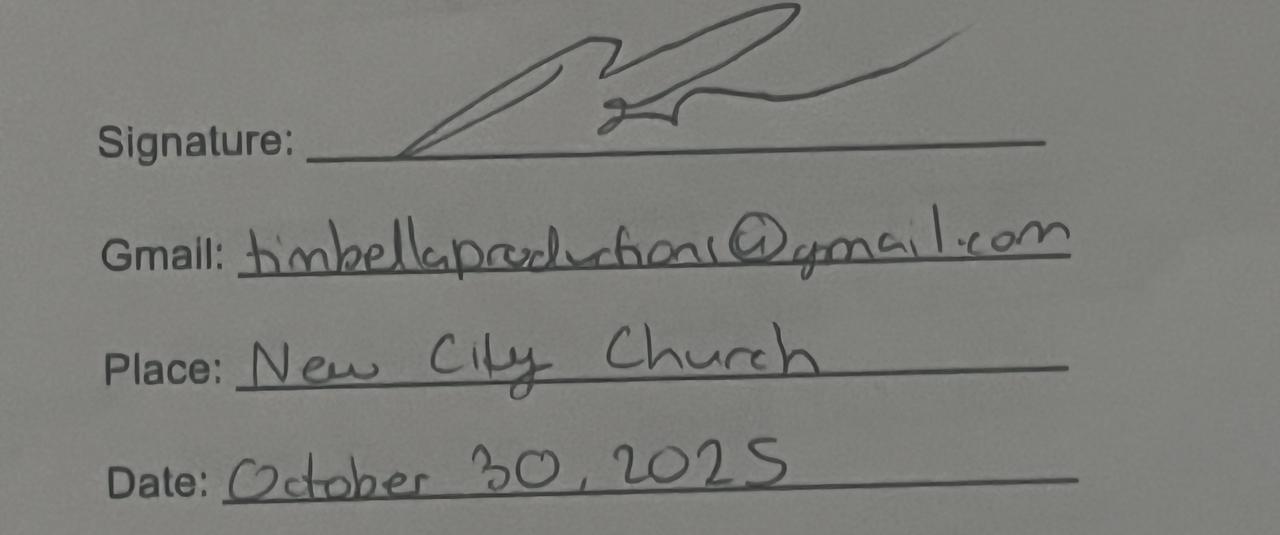 Signature:
Gmail: timbellaproductions@gmail.com
Place: New City Church
Date: October 30, 2025